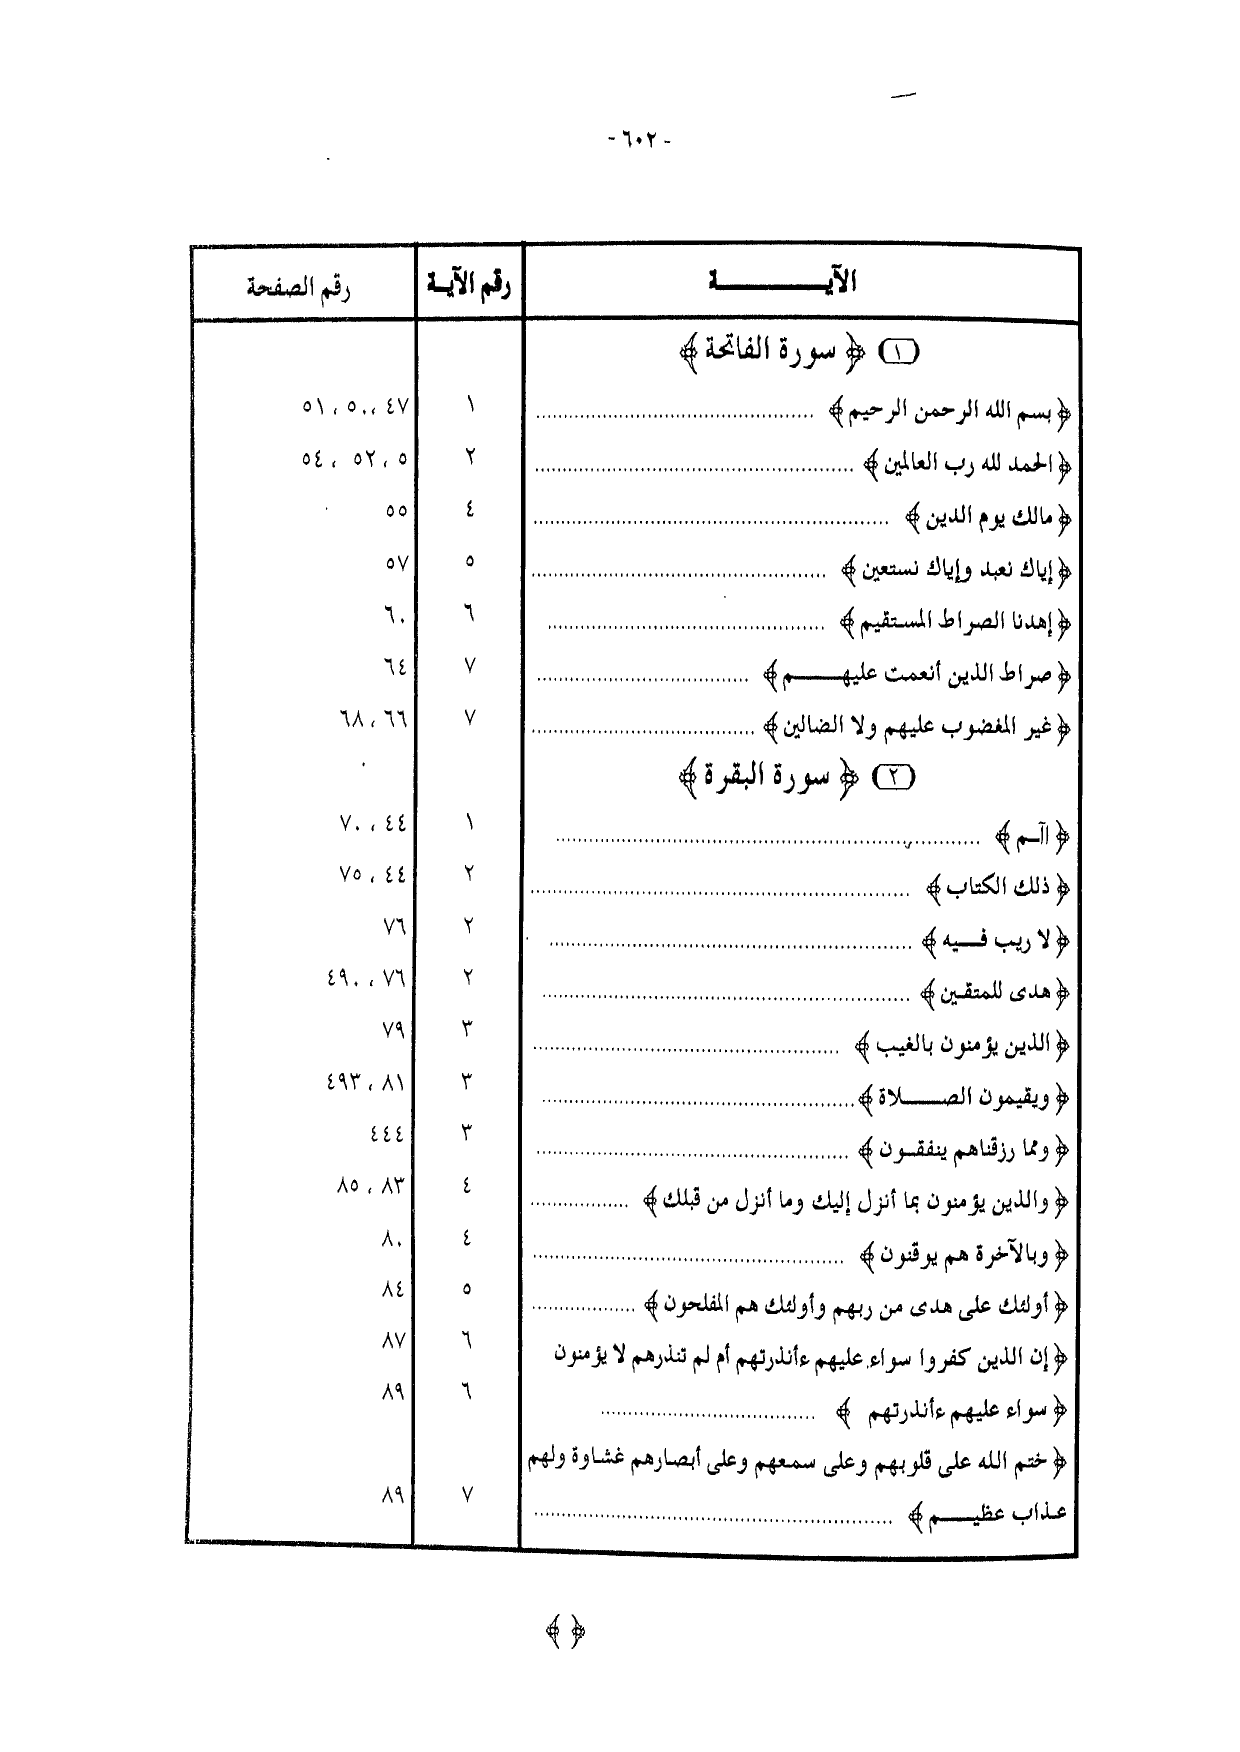 - ٦٠٢ -
الآيـــة رقم الآيـة رقم الصفحة
(١) ﴿ سورة الفاتحة ﴾
﴿ بسم الله الرحمن الرحيم ﴾ ........ ١ ٤٧ ، ٥٠ ، ٥١
﴿ الحمد لله رب العالمين ﴾ ........ ٢ ٥ ، ٥٢ ، ٥٤
﴿ مالك يوم الدين ﴾ ........ ٤ ٥٥
﴿ إياك نعبد وإياك نستعين ﴾ ........ ٥ ٥٧
﴿ إهدنا الصراط المستقيم ﴾ ........ ٦ ٦٠
﴿ صراط الذين أنعمت عليهـــم ﴾ ........ ٧ ٦٤
﴿ غير المغضوب عليهم ولا الضالين ﴾ ........ ٧ ٦٦ ، ٦٨
(٢) ﴿ سورة البقرة ﴾
﴿ آلـم ﴾ ........ ١ ٤٤ ، ٧٠
﴿ ذلك الكتاب ﴾ ........ ٢ ٤٤ ، ٧٥
﴿ لا ريب فـــيه ﴾ ........ ٢ ٧٦
﴿ هدى للمتقين ﴾ ........ ٢ ٧٦ ، ٤٩٠
﴿ الذين يؤمنون بالغيب ﴾ ........ ٣ ٧٩
﴿ ويقيمون الصـــلاة ﴾ ........ ٣ ٨١ ، ٤٩٣
﴿ ومما رزقناهم ينفقـون ﴾ ........ ٣ ٤٤٤
﴿ والذين يؤمنون بما أنزل إليك وما أنزل من قبلك ﴾ ........ ٤ ٨٣ ، ٨٥
﴿ وبالآخرة هم يوقنون ﴾ ........ ٤ ٨٠
﴿ أولئك على هدى من ربهم وأولئك هم المفلحون ﴾ ........ ٥ ٨٤
﴿ إن الذين كفروا سواء عليهم ءأنذرتهم أم لم تنذرهم لا يؤمنون ٦ ٨٧
﴿ سواء عليهم ءأنذرتهم ﴾ ........ ٦ ٨٩
﴿ ختم الله على قلوبهم وعلى سمعهم وعلى أبصارهم غشاوة ولهم
عذاب عظيـــم ﴾ ........ ٧ ٨٩
﴿ ﴾